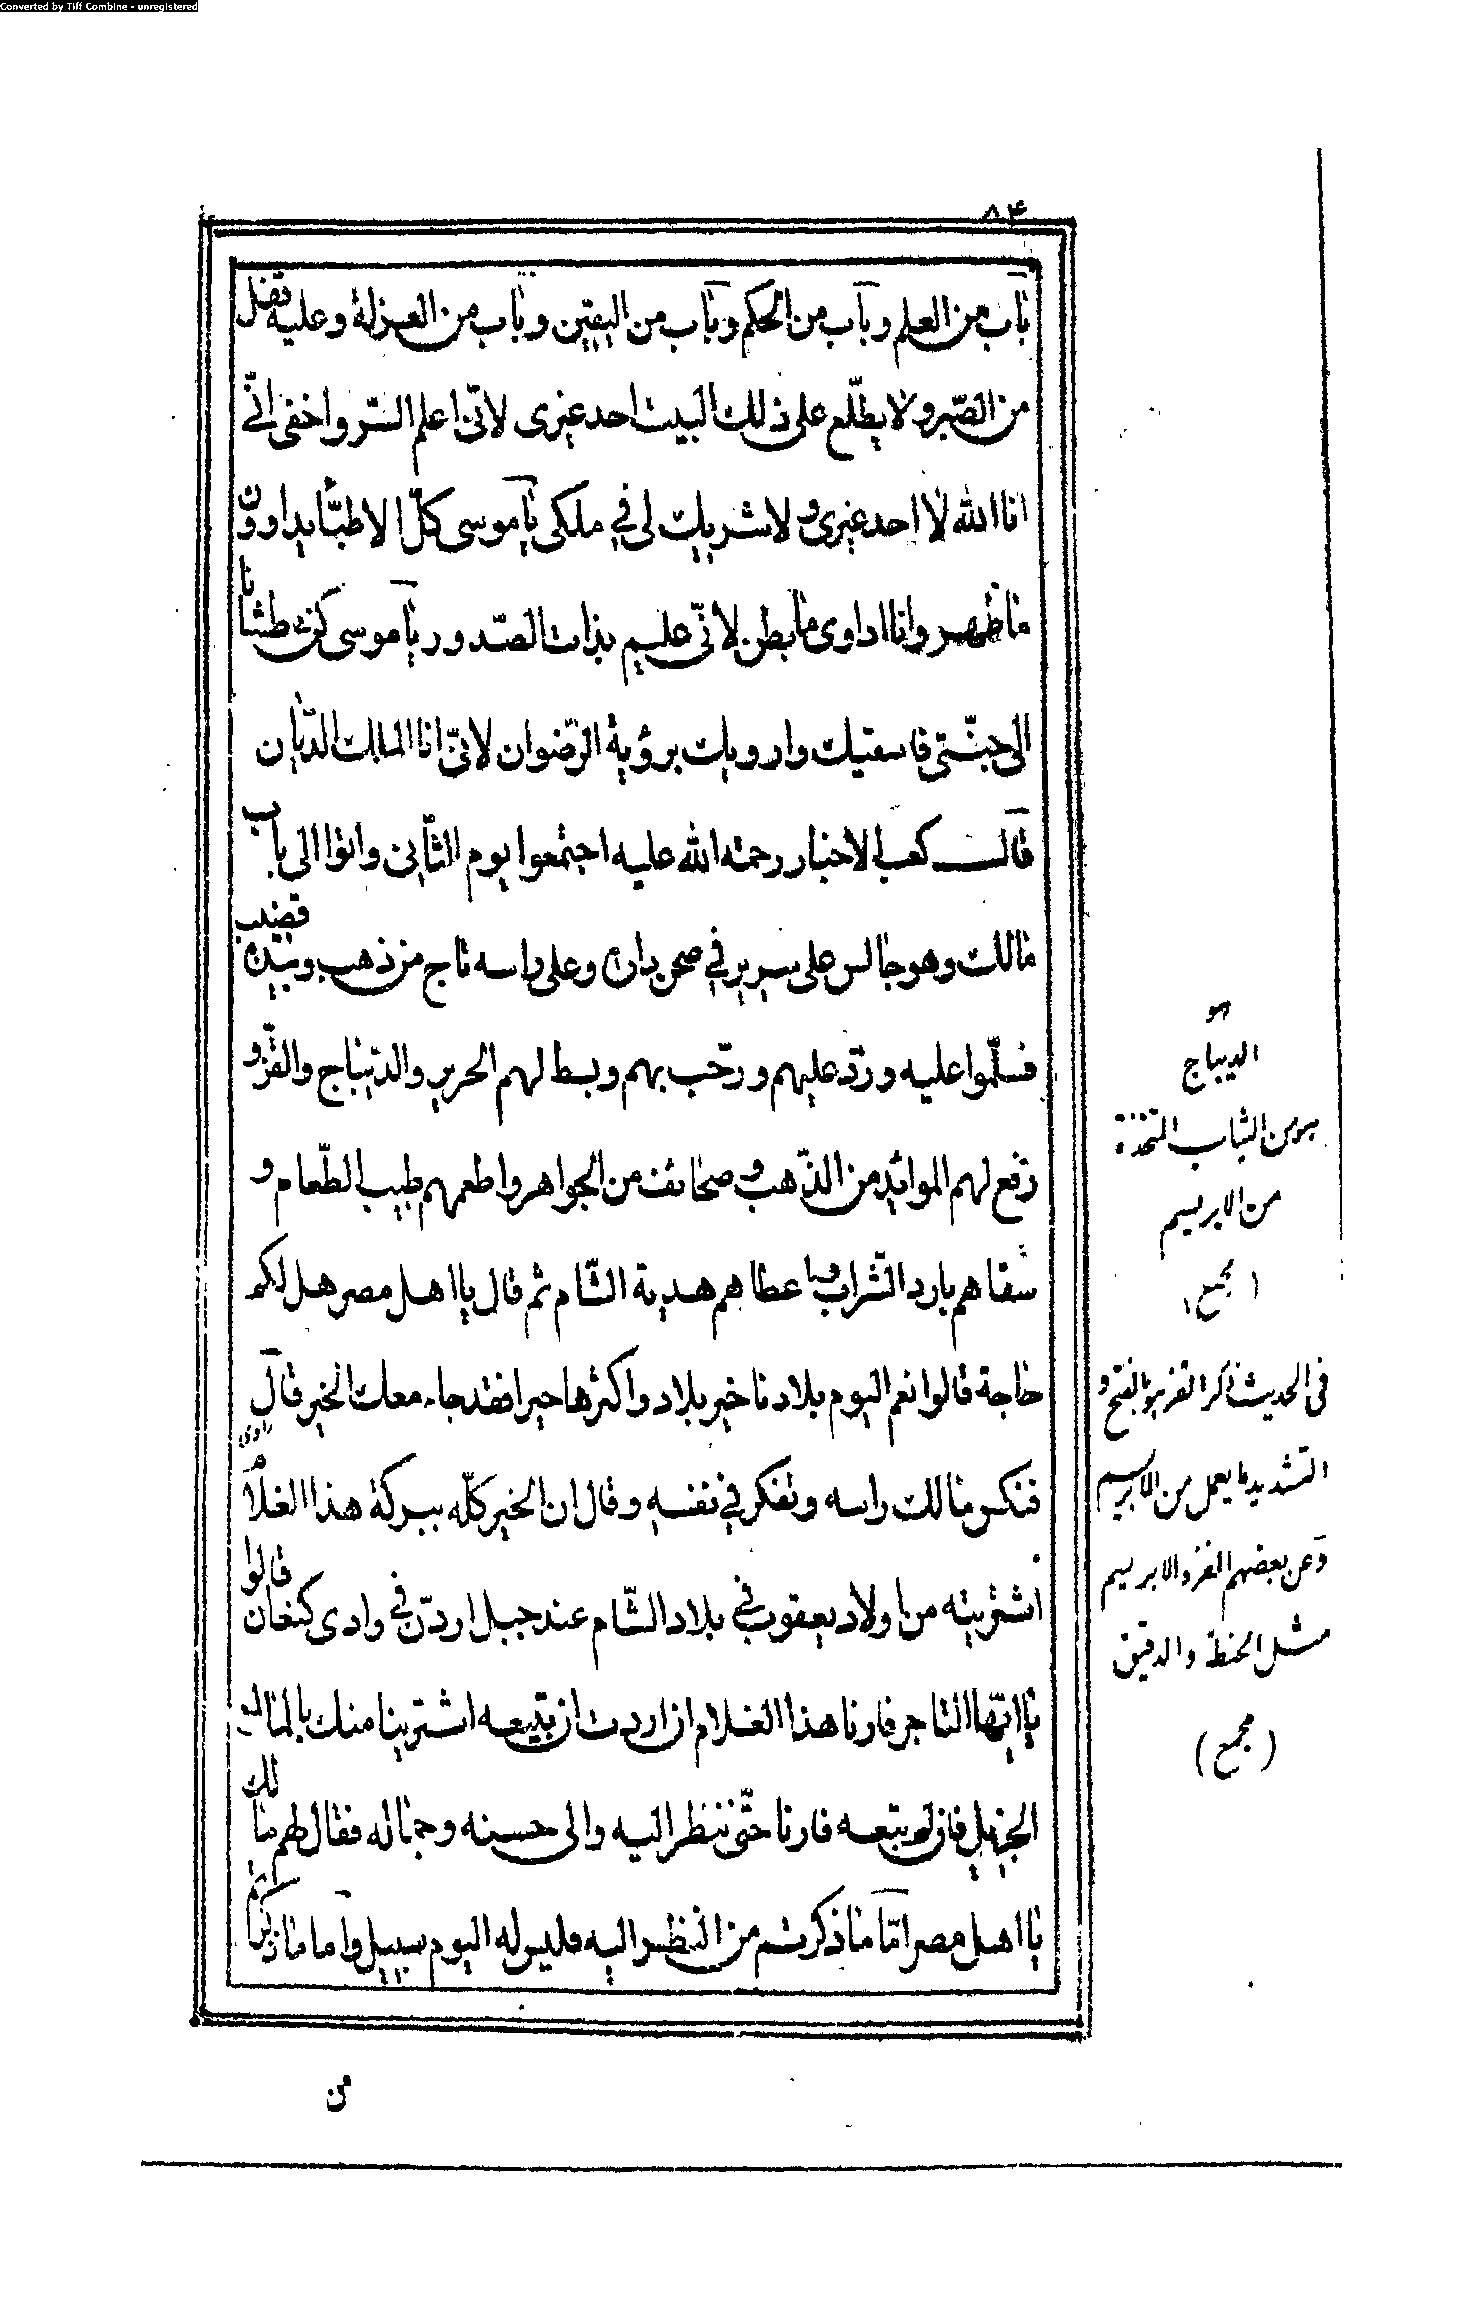 Converted by Tiff Combine - unregistered
٨۴
باب من العلم وباب من الحكم وباب من اليقين وباب من العزلة وعليه قفل
من الصّبر ولا يطّلع على ذلك البيت احد غيرى لانّى اعلم السّر واخفى انّى
انا الله لا احد غيرى ولا شريك لى في ملكى يا موسى كلّ الاطبّاء يداوون
ما ظهر وانا اداوى ما بطن لانّى عليم بذات الصّدور يا موسى كن عطشانا
الى جنّتى فاسقيك وارويك برؤية الرّضوان لانّى انا المالك الدّيان
قال كعب الاحبار رحمة الله عليه اجتمعوا يوم الثّانى واتوا الى باب
مالك وهو جالس على سرير في صحن داره وعلى راسه تاج من ذهب وبيده قضيب
فسلّموا عليه وردّ عليهم ورحّب بهم وبسط لهم الحرير والدّيباج والقزّ و
رفع لهم الموائد من الذّهب وصحائف من الجواهر واطعمهم طيب الطّعام و
سقاهم بارد الشّراب واعطاهم هدية الشّام ثم قال يا اهل مصر هل لكم
حاجة قالوا نعم اليوم بلادنا خير بلاد واكثرها خيرا فقد جاء معك الخير قال
راوى
فنكس مالك راسه وتفكر في نفسه وقال ان الخير كلّه ببركة هذا الغلام
اشتريته من اولاد يعقوب في بلاد الشّام عند جبل اردنّ في وادى كنعان قالوا
يا ايّها التاجر فارنا هذا الغلام ان اردت ان تبيعه اشترينا منك بالمال
الجزيل فان لم تبعه فارنا حتّى ننظر اليه والى حسنه وجماله فقال لهم مالك
يا اهل مصر امّا ما ذكرتم من النظر اليه فليس له اليوم سبيل واما ما ذكرتم
من
هو
الديباج
هو من الثياب المتخذة
من الابريسم
(مجمع)
فى الحديث ذكر القز هو بالفتح و
التشديد ما يعمل من الابريسم
وعن بعضهم القز والابريسم
مثل الحنطة والدقيق
(مجمع)